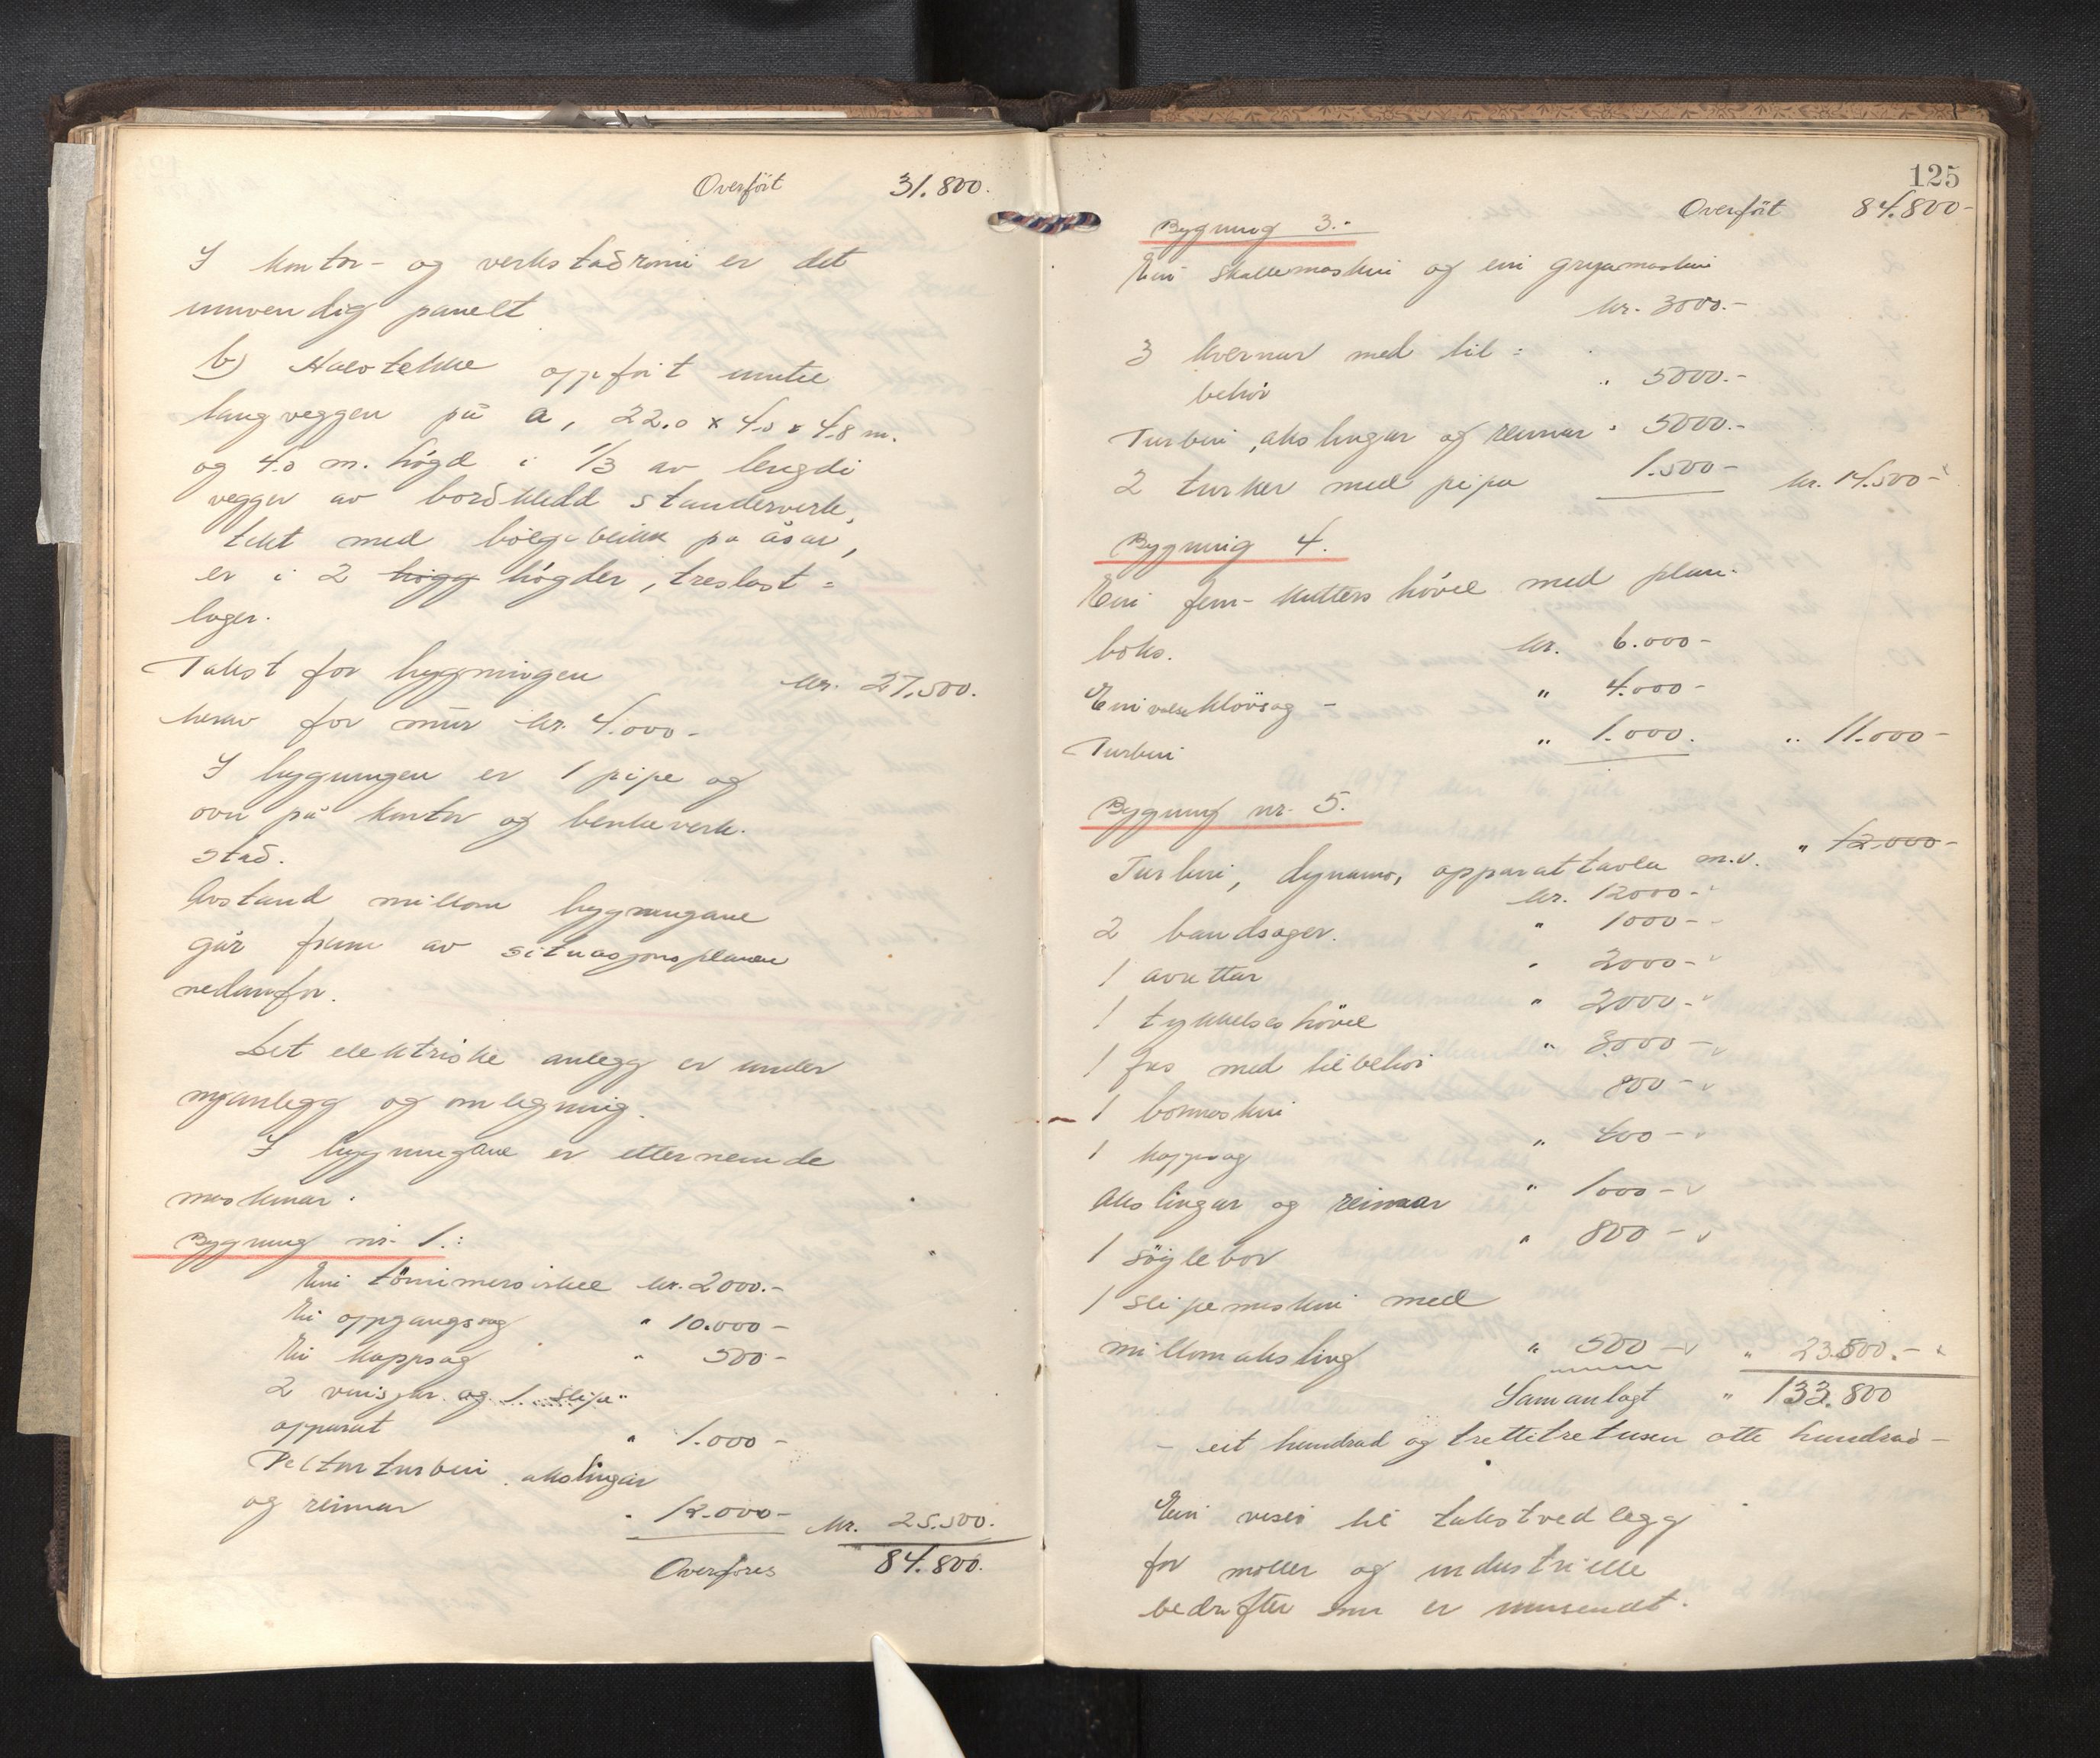 Overført 31.800.
I kontor- og verkstaðromi er det
innvendig panelt
b) Halvtekke oppført inntil
langveggen på a, 22.0 x 4.0 x 4.8 m.
og 4.0 m. högd i 1/3 av lengdi
vegger av borðkledd standerverk,
tekt med bölgeblikk på åsar,
er i 2 högg högder, treslast=
lager.
Takst for bygningen kr. 27.500.
herav for mur kr. 4.000-
I bygningen er 1 pipe og
ovn på kontor og benkeverk-
stad.
Avstand millom bygningane
går fram av situasjonsplanen
nedanfor.
Det elektriske anlegg er under
nyanlegg og omlegning.
I bygningane er etternemde
maskinar.
Bygning nr. 1.:
Ein tömmersirkel kr. 2000.-
Ei oppgangssag " 10.000-
Ei kappsag " 500-
2 vinsjar og 1 slipe"
apparat " 1.000-
Peltonturbin, akslingar
og reimar " 12.000- kr. 25.500.
Overføres 84.800.
125
Overført 84.800-
Bygning 3.-
Ein skallemaskin og ein grynmaskin
kr. 3000.-
3 kvernar med til=
behör " 5000.-
Turbin, akslingar og reimar " 5000.-
2 turker med pipa 1.500- kr. 14.500-
Bygning 4.
Ein fem-kutters hövel med plan-
boks. kr. 6.000-
Ein valseklövsag - " 4.000-
Turbin " 1.000. " 11.000-
Bygning nr. 5.
Turbin, dynamo, apparattavla m.v. " 12.000-
kr. 12000-
2 bandsager. " 1000-
1 avrettar " 2000-
1 tykkelseshövel " 2000-
1 fres med tilbehör " 3.000-
1 bormaskin 800-
1 kappsag " 400-
Akslingar og reimar " 1000-
1 söylebor " 800-
1 slipemaskin med
millomaksling " 500- " 23.500.-
Samanlagt " 133.800
- eit hundrad og trettitretusen otte hundrad-
Ein viser til takstvedlegg
for møller og industrielle
bedrifter som er innsendt.